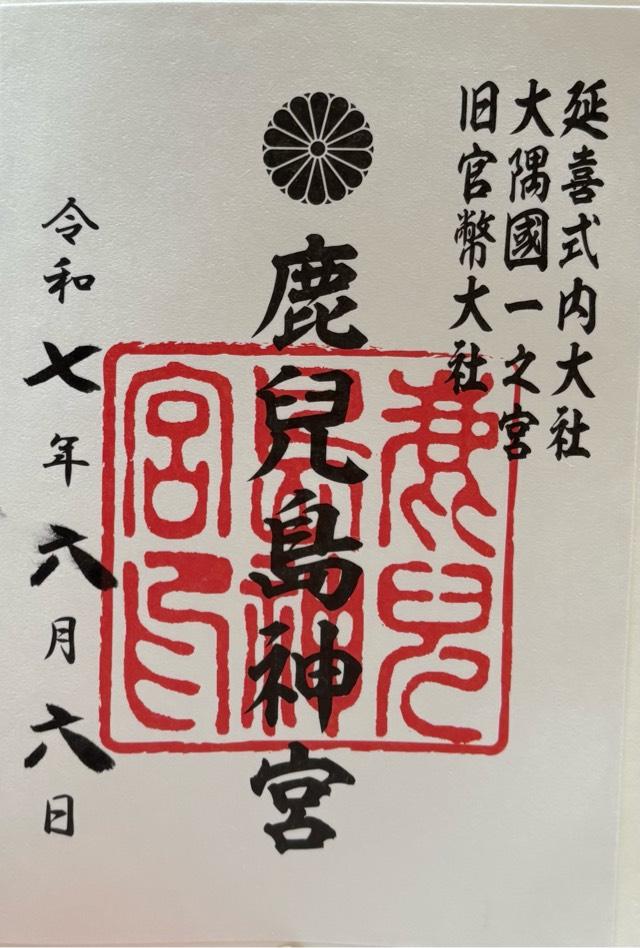 延喜式内大社
大隅國一之宮
旧官幣大社
鹿兒島神宮
鹿兒島神宮印
令和七年六月六日